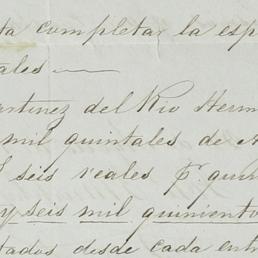 ta completar la esp
ales
artinez del Rio Herm
mil quintales de A
seis reales p.r quin
y seis mil quiniento
tados desde cada entr